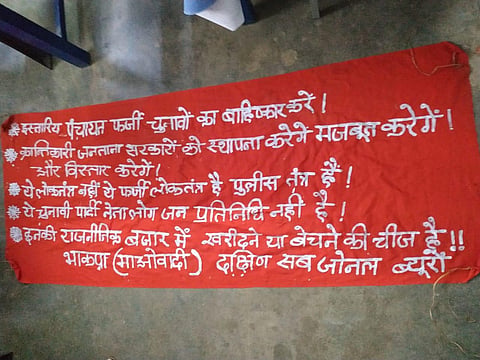 ❋ इस्तरिय पंचायत फर्जी चुनावों का बाहिष्कार करें!
❋ क्रान्तिकारी जनताना सरकारों को स्थापना करेंगे मजबूत करेगें!
और विस्तार करेगें!
❋ ये लोकतंत्र नहीं ये फर्जी लोकतंत्र है पुलीस तंत्र हैं!
❋ ये चुनावी पार्टी नेता लोग जन प्रतिनिधि नही है!
❋ इनकी राजनीतिक बजार में खरीदने या बेचने की चीज है!!
भाकपा (माओवादी) दक्षिण सब जोनल ब्यूरों